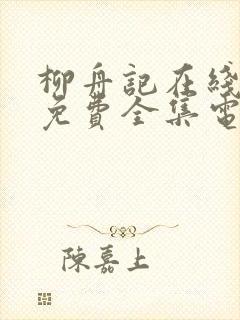 柳舟記在綫
免費全集電
陳嘉上